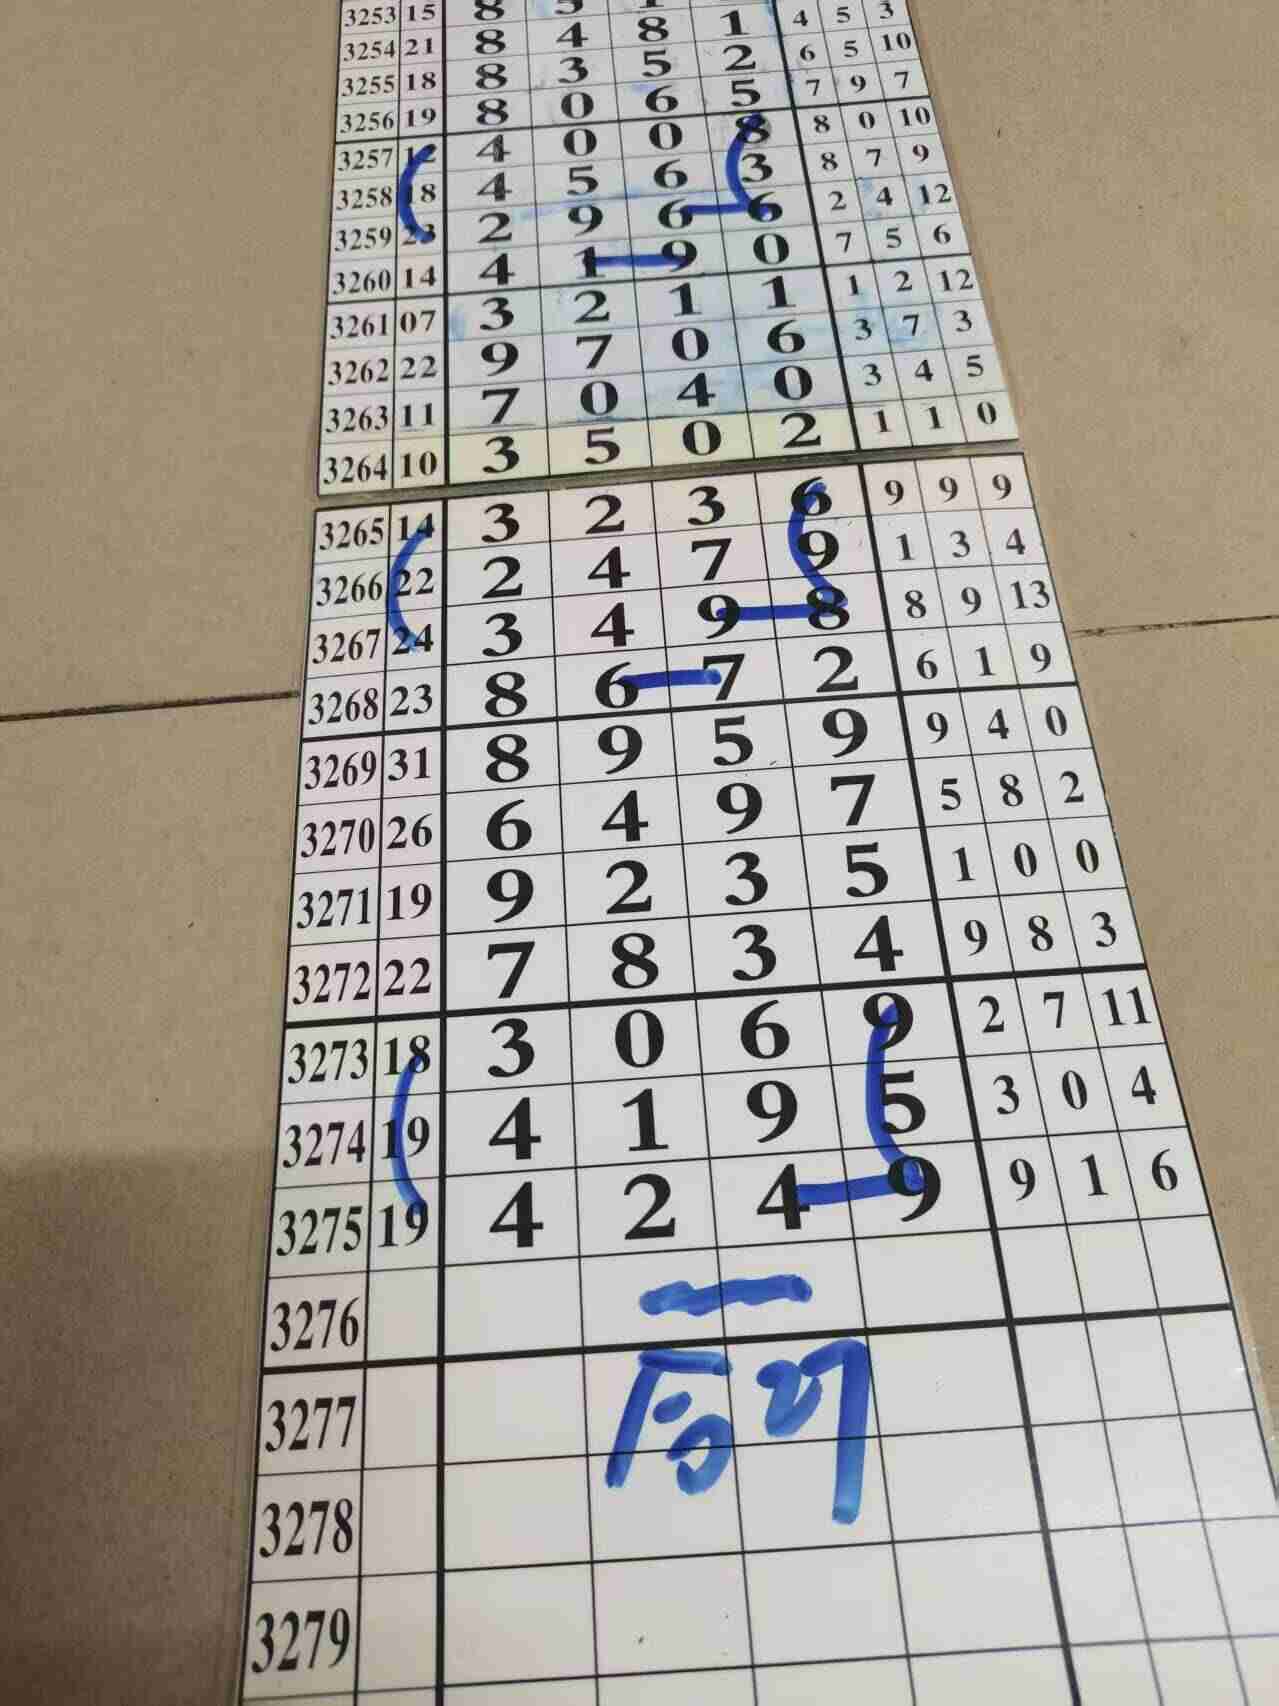 3253 15 8 5 1 4 5 3
3254 21 8 4 8 1 6 5 10
3255 18 8 3 5 2 7 9 7
3256 19 8 0 6 5 8 0 10
3257 12 4 0 0 8 8 7 9
3258 18 4 5 6 3 2 4 12
3259 23 2 9 6 6 7 5 6
3260 14 4 1 9 0 1 2 12
3261 07 3 2 1 1 3 7 3
3262 22 9 7 0 6 3 4 5
3263 11 7 0 4 0 1 1 0
3264 10 3 5 0 2
3265 14 3 2 3 6 9 9 9
3266 22 2 4 7 9 1 3 4
3267 24 3 4 9 8 8 9 13
3268 23 8 6 7 2 6 1 9
3269 31 8 9 5 9 9 4 0
3270 26 6 4 9 7 5 8 2
3271 19 9 2 3 5 1 0 0
3272 22 7 8 3 4 9 8 3
3273 18 3 0 6 9 2 7 11
3274 19 4 1 9 5 3 0 4
3275 19 4 2 4 9 9 1 6
3276
3277
3278
3279